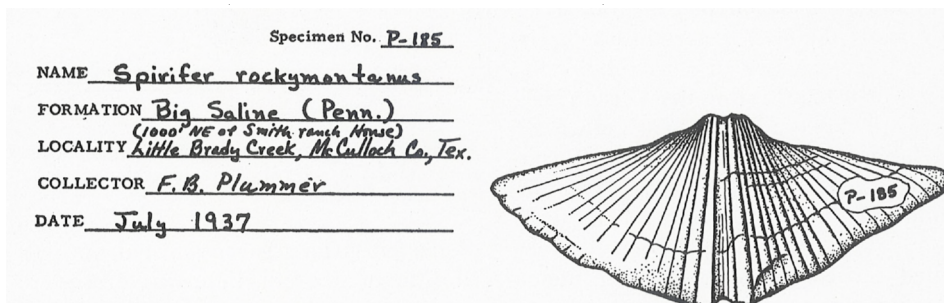 Specimen No. P-185
NAME Spirifer rockymontanus
FORMATION Big Saline (Penn.)
(1000' NE of Smith ranch House)
LOCALITY Little Brady Creek, McCulloch Co., Tex.
COLLECTOR F.B. Plummer
DATE July 1937
P-185